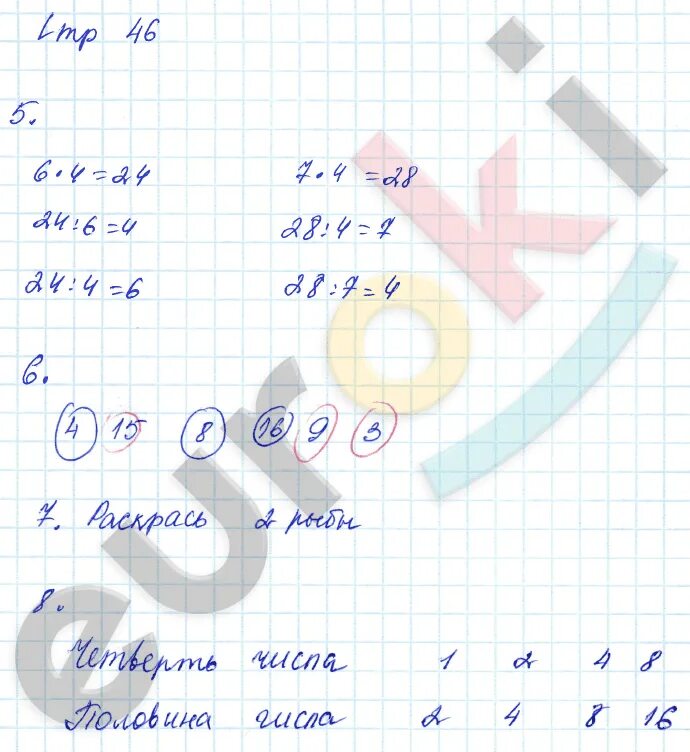 Стр 46
5.
6·4=24 7·4=28
24:6=4 28:4=7
24:4=6 28:7=4
6.
4 15 8 16 9 3
7. Раскрась 2 рыбы
8.
Четверть числа 1 2 4 8
Половина числа 2 4 8 16
euroki